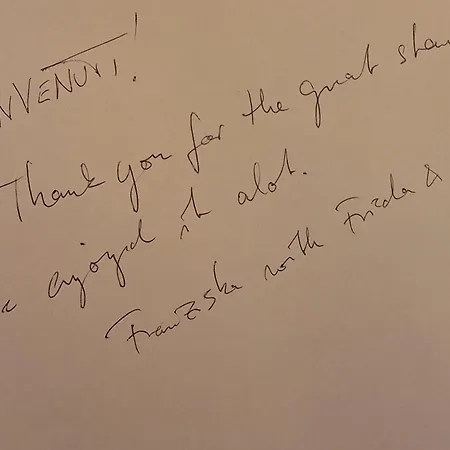 NVENUTI!
Thank you for the great stay
e enjoyed it alot.
Franziska with Frieda &